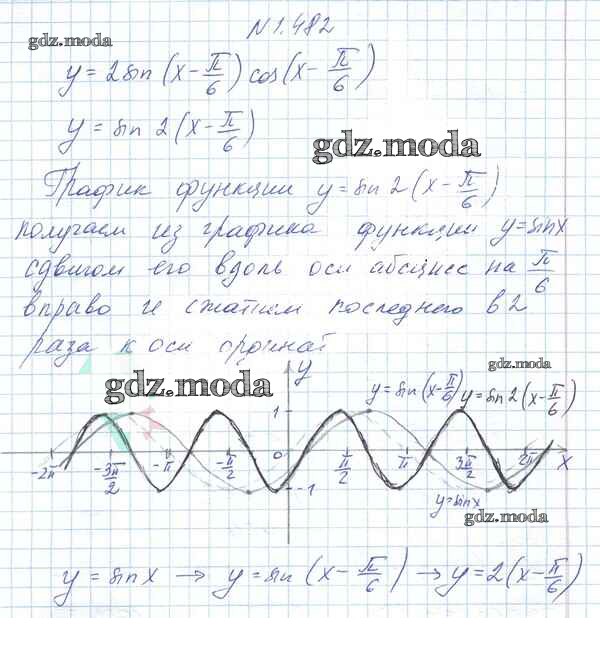 N 1.482
gdz.moda
y = 2 sin (x - π/6) cos (x - π/6)
y = sin 2 (x - π/6)
gdz.moda
График функции y = sin 2 (x - π/6)
получаем из графика функции y = sin x
сдвигом его вдоль оси абсцисс на π/6
вправо и сжатием последнего в 2
раза к оси
gdz.moda
y
y = sin (x - π/6)
gdz.moda
y = sin 2 (x - π/6)
1
-2π -3π/2 -π -π/2 0 π/2 π 3π/2 2π x
-1
y = sin x
gdz.moda
y = sin x → y = sin (x - π/6) → y = 2 (x - π/6)